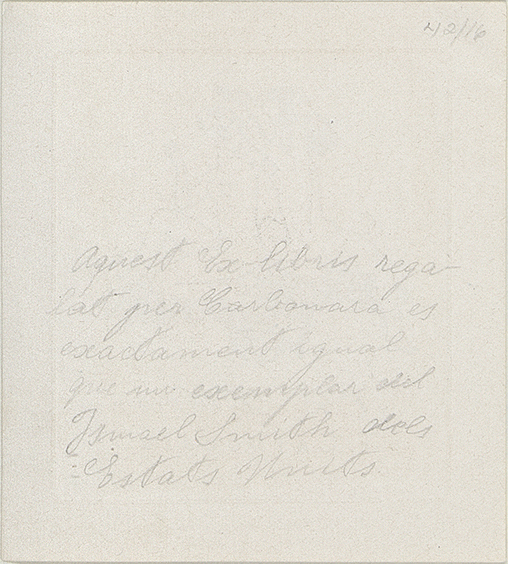 42/16
Aquest Ex-libris rega-
lat per Carbonara es
exactament igual
que un exemplar del
Ismael Smith dels
Estats Units.